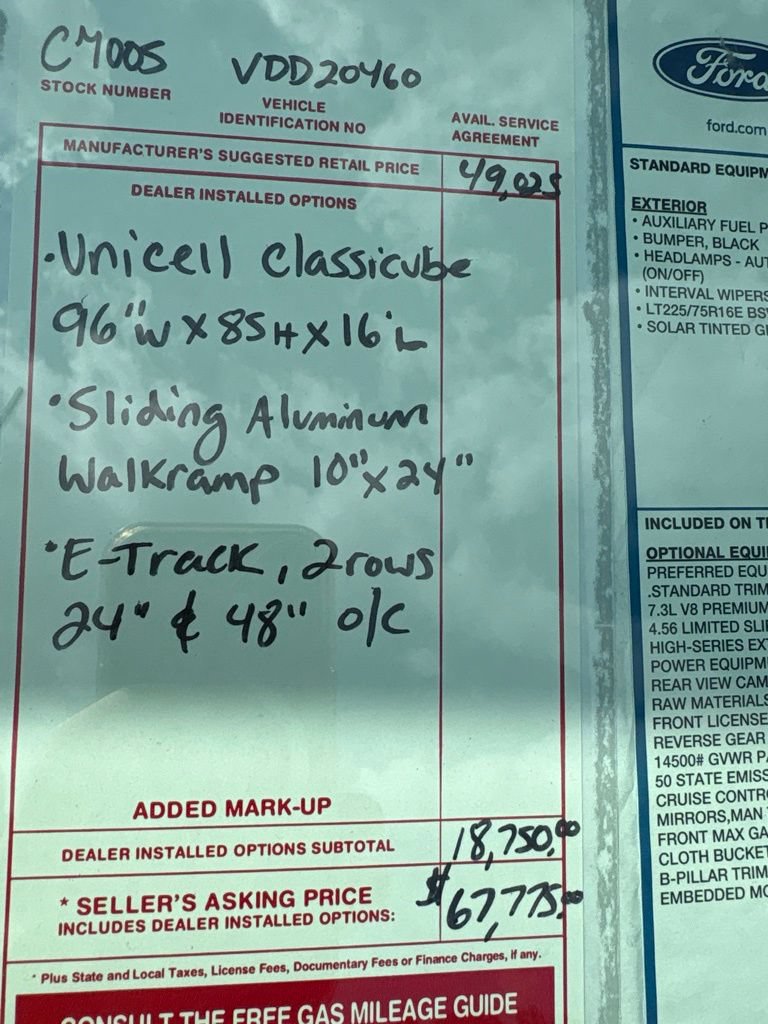 C7005
VDD20460
STOCK NUMBER
VEHICLE
IDENTIFICATION NO
AVAIL. SERVICE
AGREEMENT
MANUFACTURER'S SUGGESTED RETAIL PRICE
49,025
DEALER INSTALLED OPTIONS
• Unicell Classicube
96"W X 85H X 16'L
• Sliding Aluminum
Walkramp 10" x 24"
• E-Track, 2 rows
24" & 48" o/c
ADDED MARK-UP
DEALER INSTALLED OPTIONS SUBTOTAL
18,750.00
* SELLER'S ASKING PRICE
INCLUDES DEALER INSTALLED OPTIONS:
$67,775.00
* Plus State and Local Taxes, License Fees, Documentary Fees or Finance Charges, if any.
CONSULT THE FREE GAS MILEAGE GUIDE
Ford
ford.com
STANDARD EQUIPM
EXTERIOR
• AUXILIARY FUEL P
• BUMPER, BLACK
• HEADLAMPS - AUT
(ON/OFF)
• INTERVAL WIPERS
• LT225/75R16E BS
• SOLAR TINTED GL
INCLUDED ON TH
OPTIONAL EQUI
PREFERRED EQU
.STANDARD TRIM
7.3L V8 PREMIUM
4.56 LIMITED SLI
HIGH-SERIES EX
POWER EQUIPM
REAR VIEW CAM
RAW MATERIALS
FRONT LICENSE
REVERSE GEAR
14500# GVWR PA
50 STATE EMISS
CRUISE CONTR
MIRRORS,MAN
FRONT MAX GA
CLOTH BUCKET
B-PILLAR TRIM
EMBEDDED MO